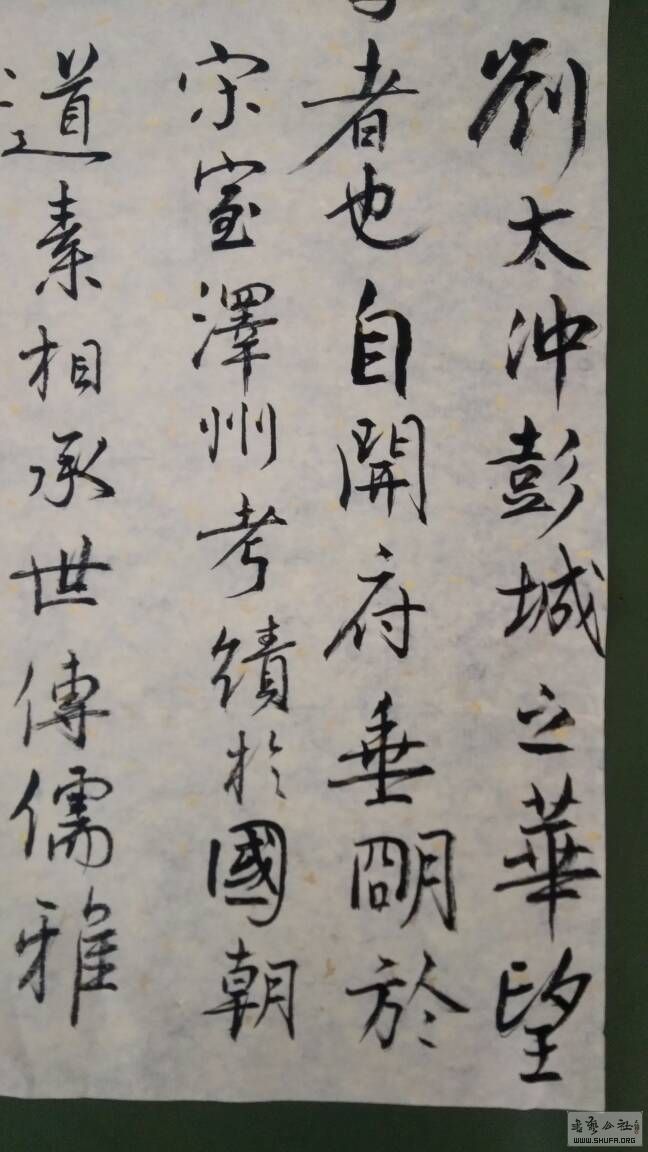 劉太沖彭城之華望
者也自開府垂明於
宋室澤州考績於國朝
道素相承世傳儒雅
書藝公社
WWW.SHUFA.ORG